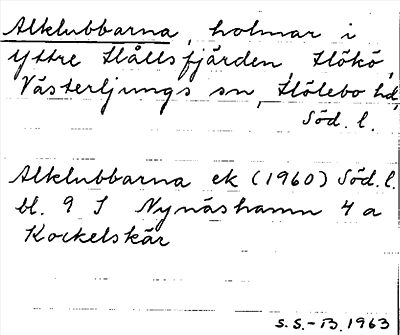 Alklubbarna, holmar i
yttre Hållsfjärden, Hökö,
Västerljungs sn, Hölebo hd,
Söd. l.
Alklubbarna ek (1960) Söd. l.
bl. 9 I Nynäshamn 4 a
Kockelskär
S. S.-B. 1963